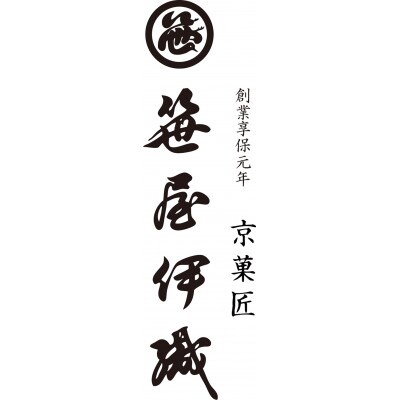 創業享保元年
京菓匠
笹屋伊織